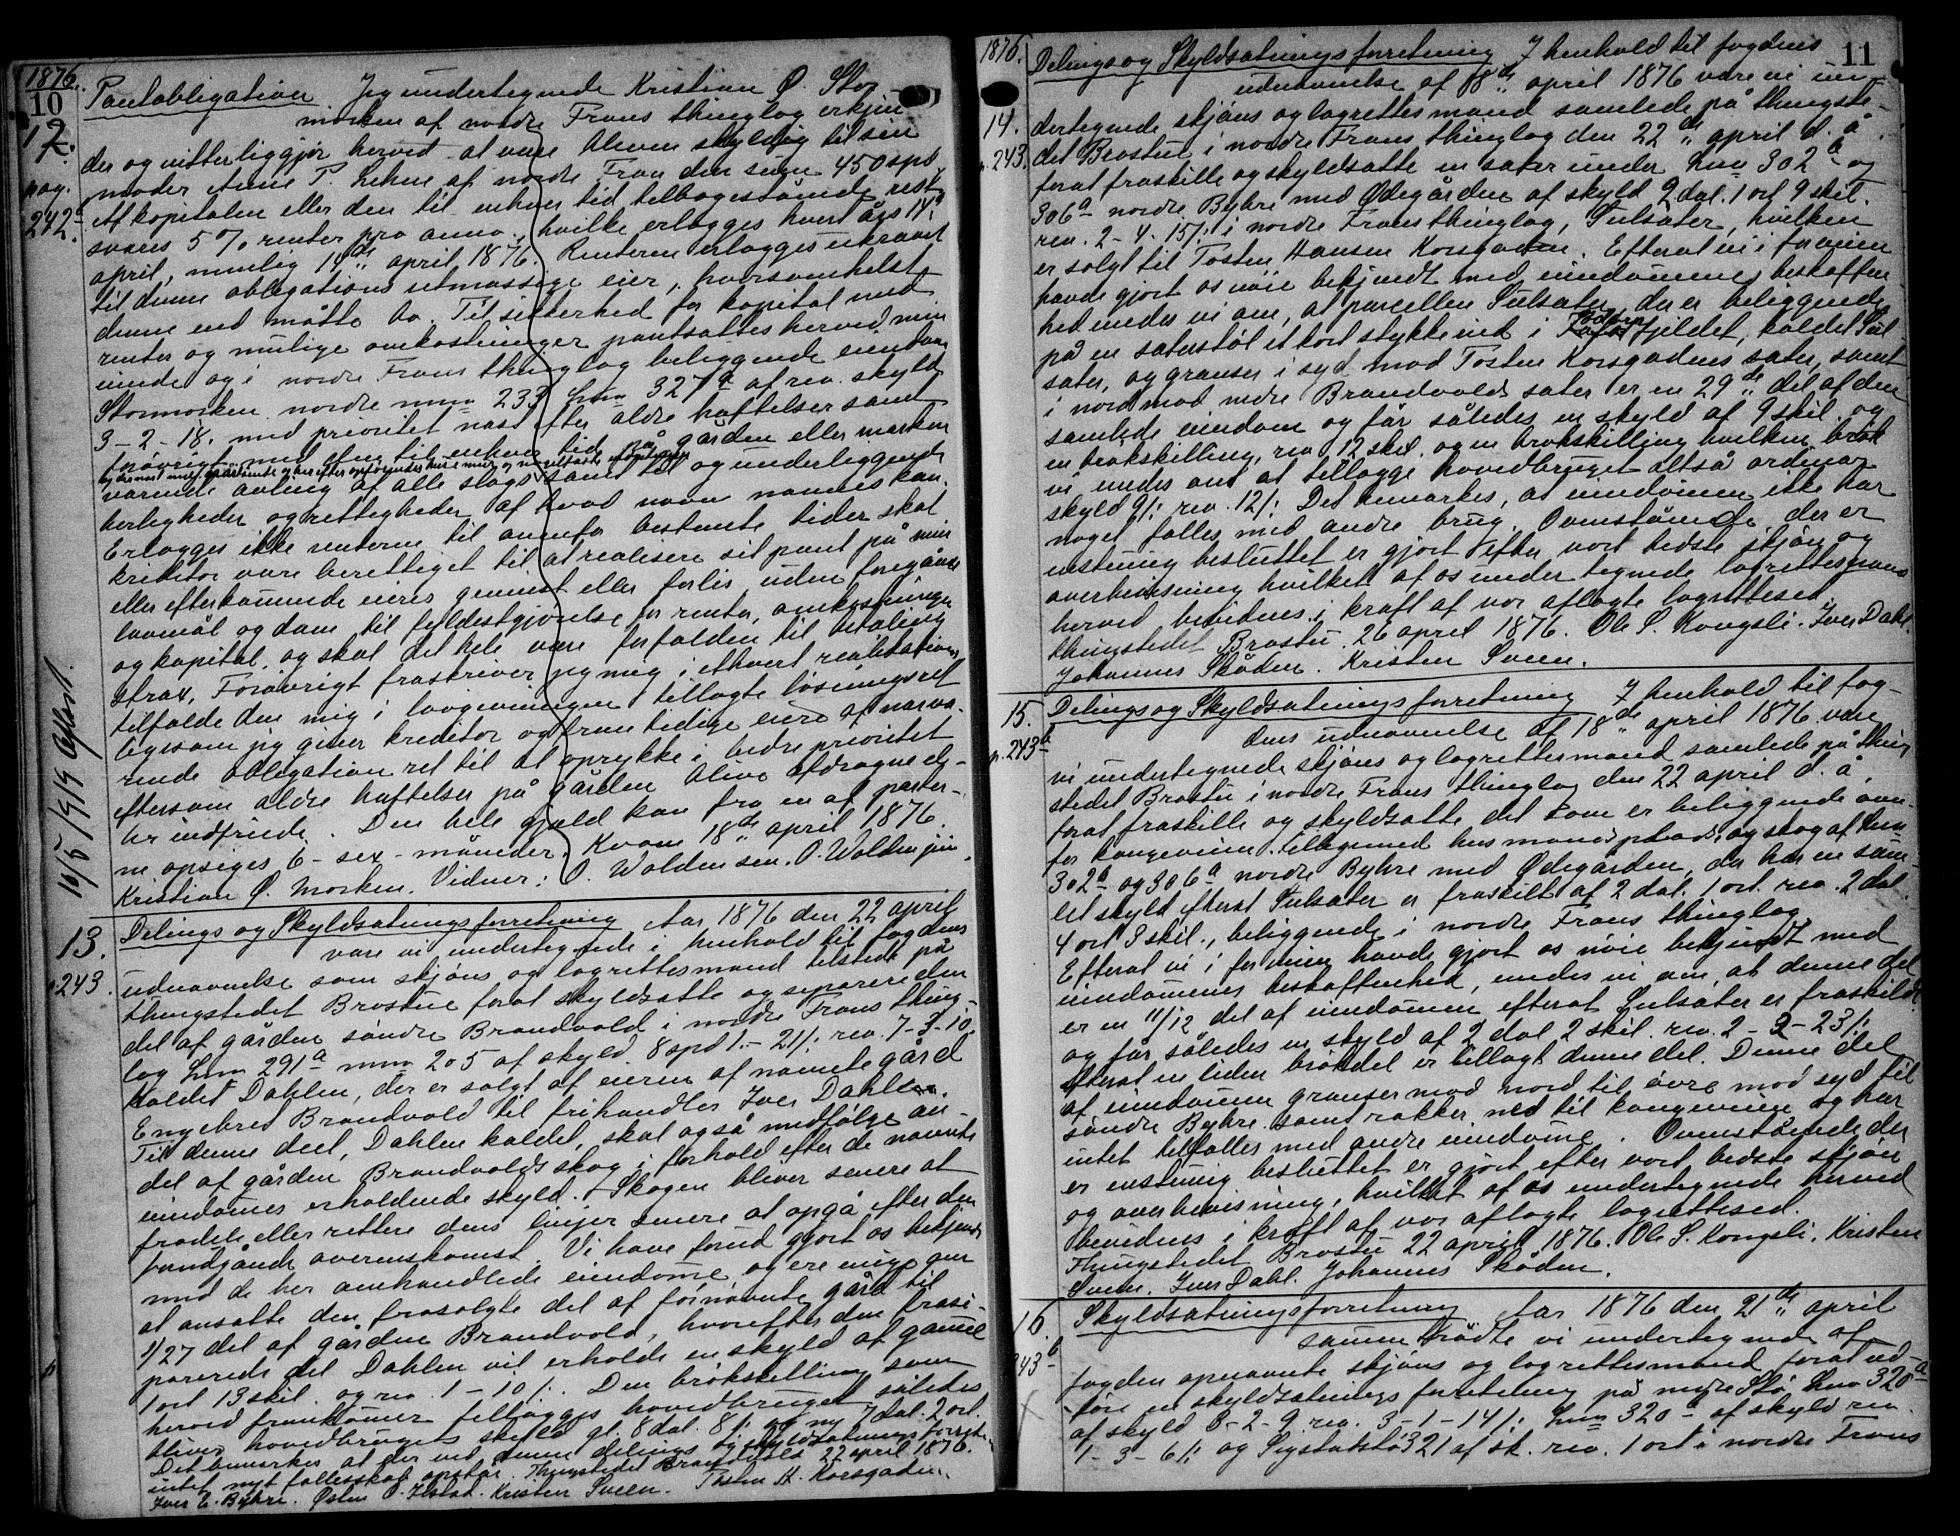 1876.
10
12.
pag.
242.a
Pantobligation. Jeg undertegnede Kristian Ø. Stor
morken af nordre Frons thinglag erkjen
der og vitterliggjør herved at være bleven skyldig til sin
moder Anne P. Lehne af nordre Fron den sum 450 spd.
Af kapitalen eller den til enhver tid tilbagestående rest
svares 5 % renter pro anno, hvilke erlægges hvert års 14de
april, nemlig 14de april 1876. Renterne erlægges ukrævet
til denne obligations retmæssige eier, hvorsomhelst
denne end måtte bo. Til sikkerhed for kapital med
renter og mulige omkostninger pantsættes herved min
eiende og i nordre Frons thinglag beliggende eiendom
Stormorken nordre mno 233 Lno 327a af rev. skyld
3-2-18. med prioritet næst efter ældre hæftelser samt
forøvrigt med den til enhver tid på gården eller marken
værende avling af alle slags samt til og underliggende
herligheder og rettigheder af hvad navn nævnes kan.
Erlægges ikke renterne til ovenfor bestemte tider skal
kreditor være berettiget til at realisere sit pant på min
eller efterkommende eieres gevinst eller forlis uden foregående
lovmål og dom til fyldestgjørelse for renter, omkostninger
og kapital, og skal det hele være forfalden til betaling
strax. Forøvrigt fraskriver jeg mig i ethvert realisations
tilfælde den mig i lovgivningen tillagte løsningsret
ligesom jeg giver kreditor og fremtidige eiere af nærvæ-
rende obligation ret til at oprykke i bedre prioritet
eftersom ældre hæftelser på gården blive afdragne el-
ler indfriede. Den hele gjæld kan fra en af parter-
ne opsiges 6 - sex - måneder. Kvam 18de april 1876.
Kristian Ø. Morken. Vidner: O. Woldensen. O. Wolden jun.
16/5 1919 Aflæst.
13.
p.243.
Delings og Skyldsætningsforretning Aar 1876 den 22 april
vare vi undertegnede i henhold til fogdens
udnævnelse som skjøns og lagrettesmænd tilstede på
thingstedet Brostue forat skyldsætte og separere den
del af gården søndre Brandvold i nordre Frons thing-
lag Lno 291a mno 205 af skyld 8 spd 1.- 21/: rev. 7-3-10.
kaldet Dahlen, der er solgt af eieren af nævnte gård
Engebret Brandvold til frihandler Iver Dahlen.
Til denne deel, Dahlen kaldet, skal også medfølge an-
del af gården Brandvolds skog i forhold efter de nævnte
eiendomes erholdende skyld. Skogen bliver senere at
fradele eller rettere dens linjer senere at opgå efter den
fundgånde overenskomst. Vi have forud gjort os bekjendt
med de her omhandlede eiendome og ere enige om
at ansætte den frasolgte del af fornævnte gård til
1/27 del af gården Brandvold, hvorefter den frase-
parerede del Dahlen vil erholde en skyld af gamel
1 ort 13 skil. og rev. 1 - 10/:. Den brøkskilling som
herved fremkomer tillægges hovedbruget således
bliver hovedbrugets skyld gl. 8 dal. 8/: og ny 7 dal. 2 ort.
Det bemærkes at der ved denne delings og skyldsætningsforretn.
intet nyt fællesskab opstår. Thingstedet Brandvold 22 april 1876.
Iver E. Byhre. Østen O. Ilstad. Kristen Sveen. Tosten H. Korsgaden.
1876.
11
14.
p.243.
Delings og Skyldsætningsforretning I henhold til fogdens
udnævnelse af 18de april 1876 vare vi un-
dertegnede skjøns og lagrettesmænd samlede på thingste-
det Brostue i nordre Frons thinglag den 22de april d. å.
forat fraskille og skyldsætte en sæter under Lno 302b og
306a nordre Byhre med Ødegården af skyld 2 dal. 1 ort 9 skil.
rev. 2-4-15/: i nordre Frons thinglag, Sulsæter, hvilken
er solgt til Tosten Hansen Korsgaden. Efterat vi i forveien
havde gjort os nøie bekjendt med eiendomens beskaffen
hed enedes vi om, at parcellen Sulsæter, der er beliggende
på en sæterstøl et kort stykke ind i fjeldet, kaldet Sul
sæter, og grænser i syd mod Tosten Korsgadens sæter, samt
i nord mod nedre Brandvolds sæter er en 29de del af den
samlede eiendom og får således en skyld af 9 skil. og
en brøkskilling, rev. 12 skil. og en brøkskilling hvilken brøk
vi enedes om at tillægge hovedbruget altså ordinær
skyld 9/: rev. 12/: Det bemærkes, at eiendomen ikke har
noget fælles med andre brug. Ovenstående, der er
enstemig besluttet er gjort efter vort bedste skjøn og
overbevisning hvilket af os undertegnede lagrettesmænd
herved bevidnes i kraft af vor aflagte lagrettesed.
Thingstedet Brostue 26 april 1876. Ole S. Kongsli. Iver Dahl.
Johannes Skåden. Kristen Sveen.
15.
p.243b
Delings og Skyldsætningsforretning I henhold til fog-
dens udnævnelse af 18de april 1876 vare
vi undertegnede skjøns og lagrettesmænd samlede på thing
stedet Brostue i nordre Frons thinglag den 22 april d. å.
forat fraskille og skyldsætte det som er beliggende oven-
for kongeveien tilligemed husmandsplads og skog af Lno
302b og 306a nordre Byhre med Ødegården, der har en sam-
let skyld efterat Sulsæter er fraskilt af 2 dal. 1 ort. rev. 2 dal.
4 ort 3 skil., beliggende i nordre Frons thinglag.
Efterat vi i forveien havde gjort os nøie bekjendt med
eiendomens beskaffenhed, enedes vi om, at denne del
er en 11/12 del af eiendomen efterat Sulsæter er fraskildt
og får således en skyld af 2 dal 2 skil. rev. 2-3-23/:
efterat en liden brøkdel er tillagt denne del. Denne del
af eiendomen grænser mod nord til øvre mod syd til
søndre Byhre samt rækker ned til kongeveien og har
intet tilfælles med andre eiendome. Ovenstående der
er enstemig besluttet er gjort efter vort bedste skjøn
og overbevisning, hvilket af os undertegnede herved
bevidnes i kraft af vor aflagte lagrettesed.
Thingstedet Brostue 22 april 1876. Ole S. Kongsli. Kristen
Sveen. Iver Dahl. Johannes Skåden.
16.
243b
Skyldsætningsforretning Aar 1876 den 21de april
sammentrådte vi undertegnede af
fogden opnævnte skjøns og lagrettesmænd forat ud-
føre en skyldsætningsforretning på nedre Stø Lno 320a
af skyld 3-2-9 rev. 3-1-14/: Lno 320b af skyld rev.
1-3-6/: og Sigstadstø 321 af sk. rev. 1 ort i nordre Frons